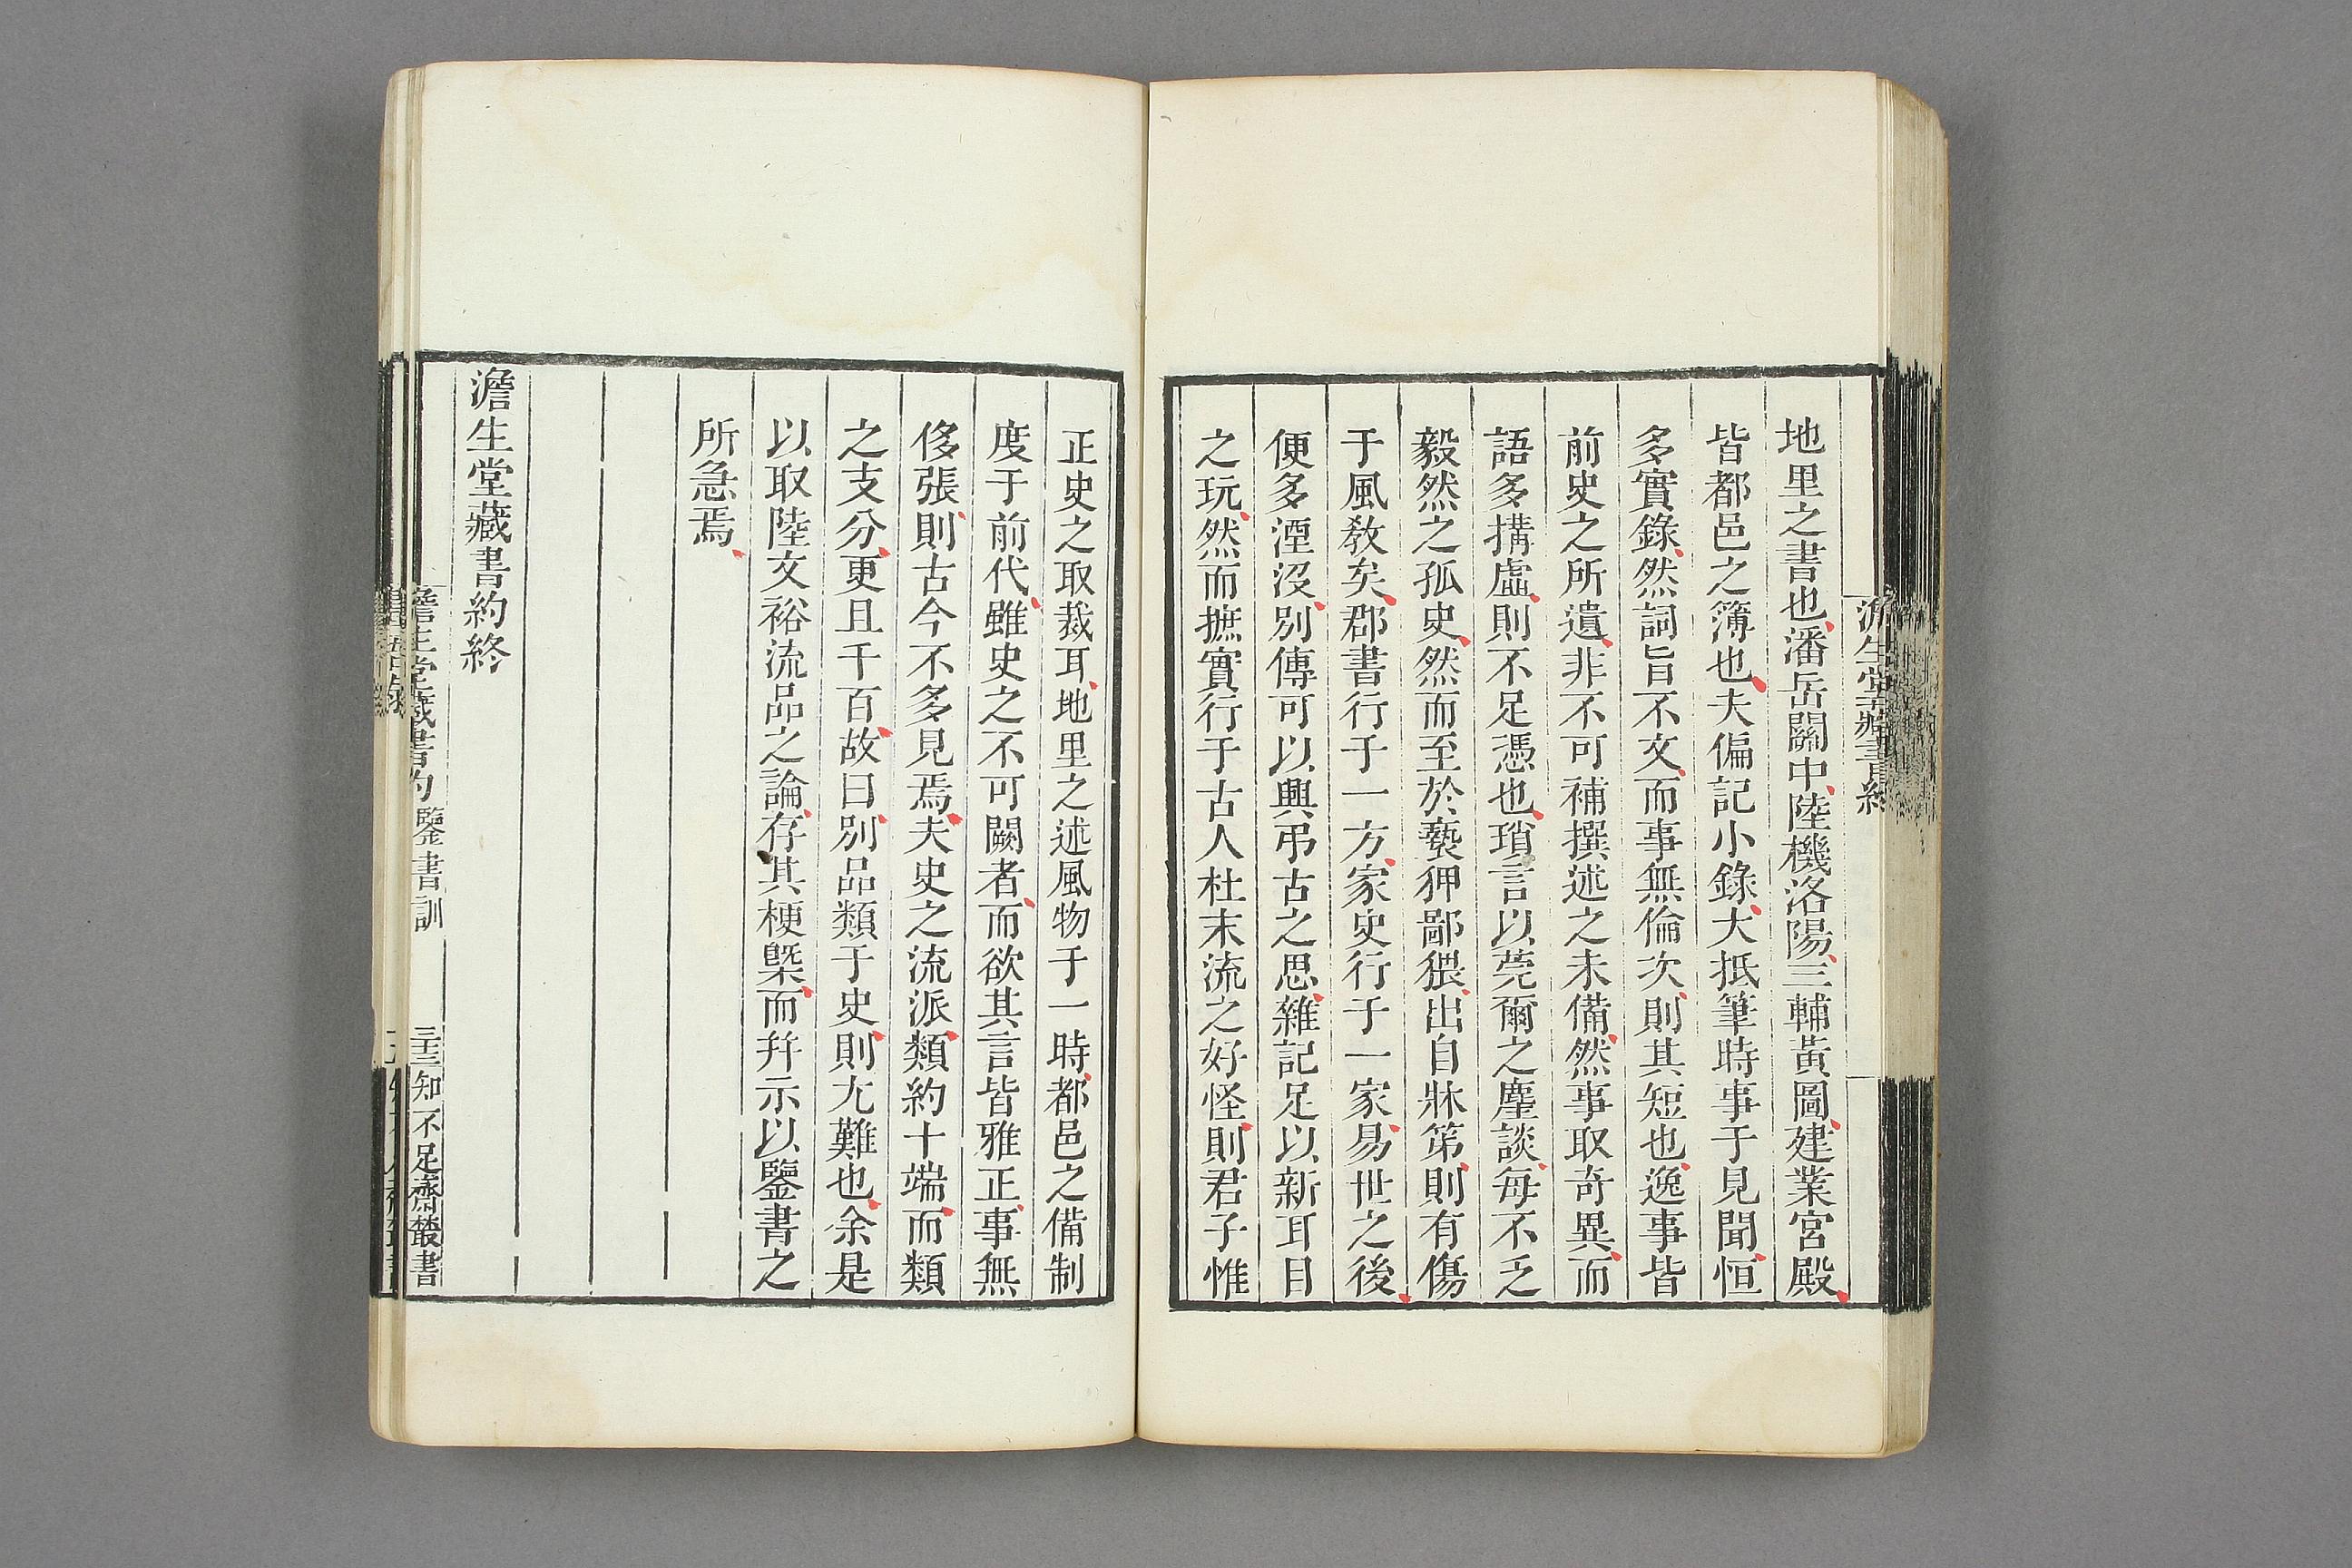 地里之書也潘岳關中陸機洛陽三輔黃圖建業宮殿
皆都邑之簿也夫偏記小錄大抵筆時事于見聞恒
多實錄然詞旨不文而事無倫次則其短也逸事皆
前史之所遺非不可補撰述之未備然事取奇異而
語多搆虛則不足憑也瑣言以莞爾之麈談每不乏
毅然之孤史然而至於褻狎鄙猥出自牀第則有傷
于風敎矣郡書行于一方家史行于一家易世之後
便多湮沒別傳可以興弔古之思雜記足以新耳目
之玩然而摭實行于古人杜末流之好怪則君子惟
正史之取裁耳地里之述風物于一時都邑之備制
度于前代雖史之不可闕者而欲其言皆雅正事無
侈張則古今不多見焉夫史之流派類約十端而類
之支分更且千百故曰別品類于史則尤難也余是
以取陸文裕流品之論存其梗槩而幷示以鑒書之
所急焉
澹生堂藏書約終
澹生堂藏書約 鑒書訓 三十三 知不足齋叢書